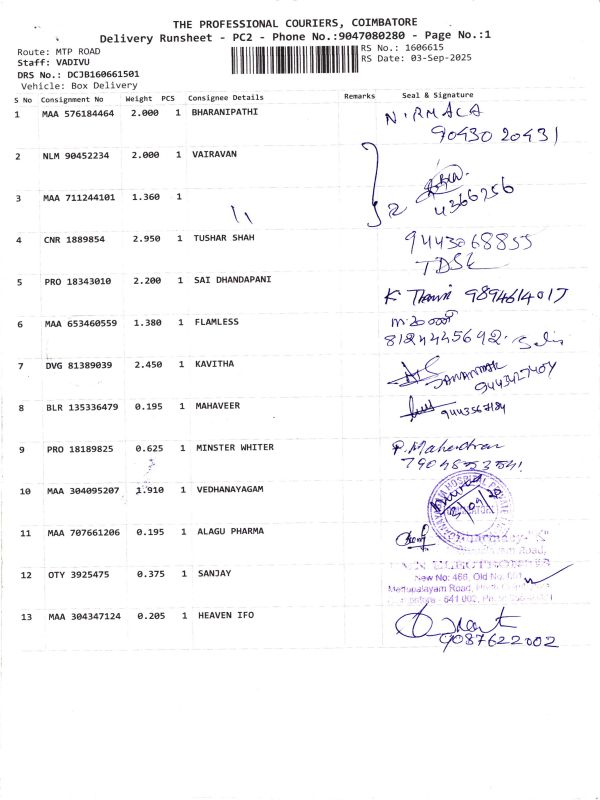 THE PROFESSIONAL COURIERS, COIMBATORE
Delivery Runsheet - PC2 - Phone No.:9047080280 - Page No.:1
Route: MTP ROAD
RS No.: 1606615
Staff: VADIVU
RS Date: 03-Sep-2025
DRS No.: DCJB160661501
Vehicle: Box Delivery
S No Consignment No Weight PCS Consignee Details Remarks Seal & Signature
1 MAA 576184464 2.000 1 BHARANIPATHI NIRMALA
9043020431
2 NLM 90452234 2.000 1 VAIRAVAN
3 MAA 711244101 1.360 1
11 2 4366256
4 CNR 1889854 2.950 1 TUSHAR SHAH 9443068855
TDSK
5 PRO 18343010 2.200 1 SAI DHANDAPANI K 9894614017
6 MAA 653460559 1.380 1 FLAMLESS
8124445692
7 DVG 81389039 2.450 1 KAVITHA
9443427404
8 BLR 135336479 0.195 1 MAHAVEER 9443567184
9 PRO 18189825 0.625 1 MINSTER WHITER P. Mahendran
7904853541
10 MAA 304095207 1.910 1 VEDHANAYAGAM
11 MAA 707661206 0.195 1 ALAGU PHARMA
Pharmacy-"K"
Road,
12 OTY 3925475 0.375 1 SANJAY ELECTRONICS
New No: 466, Old No.
Mettupalayam Road,
- 641 002,
13 MAA 304347124 0.205 1 HEAVEN IFO
9087622002